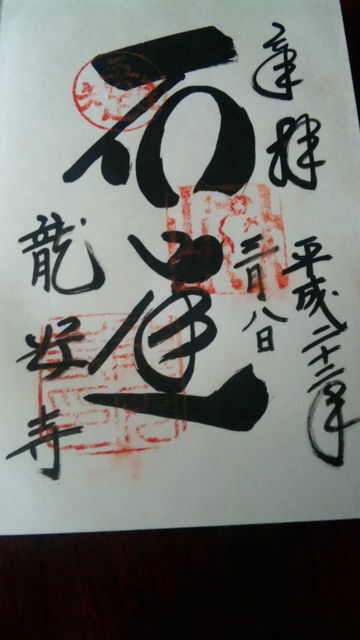 奉拝
平成二十二年
二月八日
石庭
龍安寺